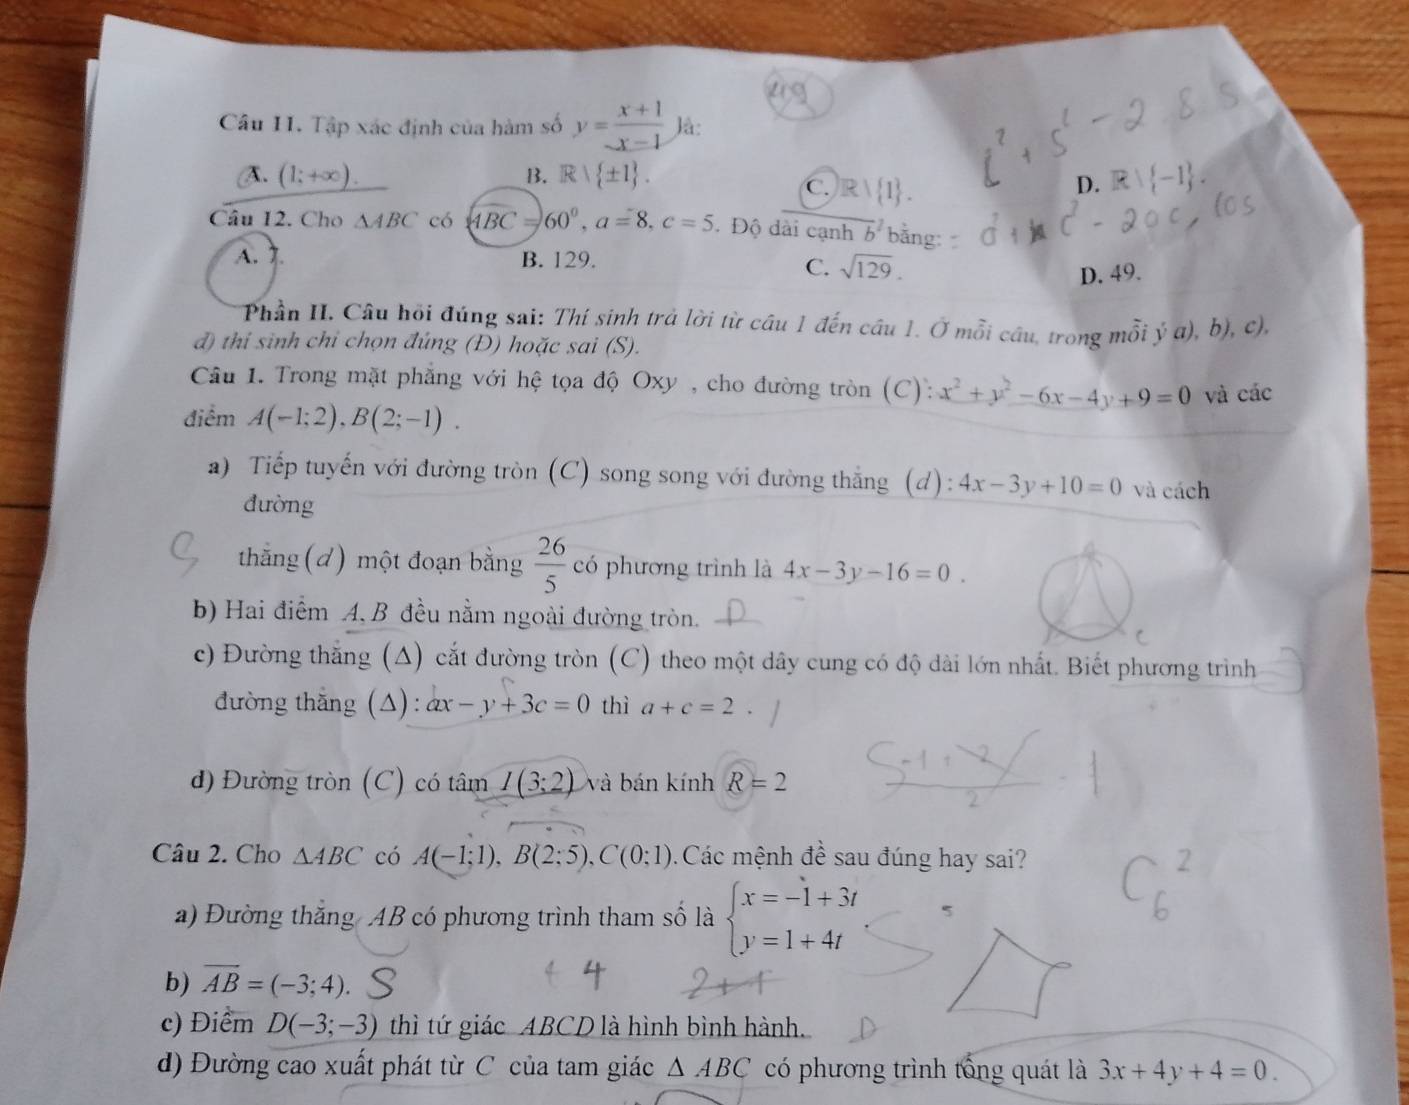 Câu 11. Tập xác định của hàm số y = \frac{x+1}{x-1} là:
A. (1; +∞). B. ℝ \ {±1}. C. ℝ \ {1}. D. ℝ \ {-1}.
Câu 12. Cho ΔABC có \widehat{ABC} = 60⁰, a = 8, c = 5. Độ dài cạnh b bằng:
A. 7. B. 129. C. √129. D. 49.
Phần II. Câu hỏi đúng sai: Thí sinh trả lời từ câu 1 đến câu 1. Ở mỗi câu, trong mỗi ý a), b), c),
d) thí sinh chỉ chọn đúng (Đ) hoặc sai (S).
Câu 1. Trong mặt phẳng với hệ tọa độ Oxy , cho đường tròn (C): x² + y² - 6x - 4y + 9 = 0 và các
điểm A(-1; 2), B(2; -1) .
a) Tiếp tuyến với đường tròn (C) song song với đường thẳng (d): 4x - 3y + 10 = 0 và cách
đường
S thẳng (d) một đoạn bằng \frac{26}{5} có phương trình là 4x - 3y - 16 = 0 .
b) Hai điểm A, B đều nằm ngoài đường tròn. Đ
c) Đường thẳng (Δ) cắt đường tròn (C) theo một dây cung có độ dài lớn nhất. Biết phương trình
đường thẳng (Δ): ax - y + 3c = 0 thì a + c = 2 .
d) Đường tròn (C) có tâm I(3; 2) và bán kính R = 2
Câu 2. Cho ΔABC có A(-1; 1), B(2; 5), C(0; 1). Các mệnh đề sau đúng hay sai?
C₆²
a) Đường thẳng AB có phương trình tham số là { x = -1 + 3t
y = 1 + 4t .
b) \overline{AB} = (-3; 4). S 4
c) Điểm D(-3; -3) thì tứ giác ABCD là hình bình hành. D
d) Đường cao xuất phát từ C của tam giác Δ ABC có phương trình tổng quát là 3x + 4y + 4 = 0.